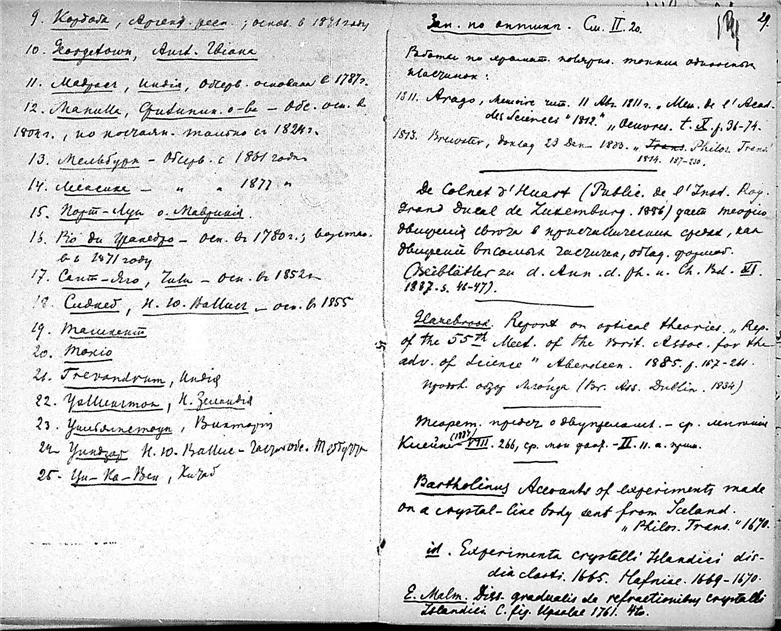 9. Кордова, Аргент. респ.; основ. в 1871 году
10. Georgetown, Англ. Гвиана
11. Мадрас, Индія, Обсерв. основана в 1787 г.
12. Манилла, Филиппин. о-ва – Обс. осн. в
1802 г., но постоян. только съ 1824 г.
13. Мельбурн – Обсерв. с 1861 года
14. Мексике – " " 1877 "
15. Порт-Луи о. Маврикія
16. Ріо ди Жанейро – осн. в 1780 г.;
в 1871 году
17. Сант-Яго, Чили – осн. в 1852 г.
18. Сидней, Н. Ю. Валлис – осн. в 1855
19. Ташкент
20. Токіо
21. Trevandrum, Индія
22. Уэллингтон, Н. Зеландія
23. Уильямстоун, Викторія
24. Уиндзор Н. Ю. Валлис – Частн. обс. Теббутт
25. Ци-Ка-Веи, Китай
29.
Зап. по оптик. См. II. 20.
Работы по хромат. поляриз. тонких одноосных
пластинок:
1811. Arago, Memoire чит. 11 Авг. 1811 г. „Mem. de l'Acad.
des Sciences" 1812." „Oeuvres. t. X. p. 36-74.
1813. Brewster, доклад 23 Дек. 1813. „Trans. Philos. Trans."
1814. 187-230.
De Colnet d'Huart (Public. de l'Inst. Roy.
grand Ducal de Luxemburg. 1886) дает теорію
движенія света в призматических средах, как
движеній весомых частиц,
(Beiblätter zu d. Ann. d. Ph. u. Ch. Bd. XI.
1887. s. 46-47).
Glazebrook. Report on optical theories. „Rep.
of the 55th Meet. of the Brit. Assoc. for the
adv. of Science" Aberdeen. 1885. p. 157-261.
продолж. отчет Ллойда (Br. As. Dublin. 1834)
Теорет. предст. о двупреломл. – ср.
Клейне (1887) VIII. 266, ср. мои – II. 11. а. прим.
Bartholinus Accounts of experiments made
on a crystal-line body sent from Iceland.
„Philos. Trans." 1670.
id. Experimenta crystalli Islandici dis-
diaclasti. 1665. Hafniae. 1669-1670.
E. Malm. Diss. gradualis de refractionibus crystalli
Islandici C. fig. Upsalae 1761. 4to.